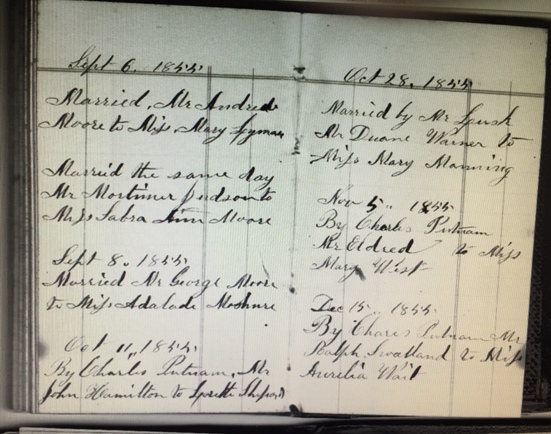 Sept 6, 1855
Married, Mr Andrew
Moore to Miss Mary Lyman
Married the same day
Mr Mortimer Judson to
Miss Sabra Ann Moore
Sept 8, 1855
Married Mr George Moore
to Miss Adalade
Oct 11, 1855
By Charles Putnam, Mr
John Hamilton to
Oct 28, 1855
Married by Mr Lusk
Mr Duane Warner to
Miss Mary Manning
Nov 5, 1855
By Charles Putnam
Mr Eldred to Miss
Mary West
Dec 15, 1855
By Chares Putnam Mr
Ralph Swatland to Miss
Aurelia Wait